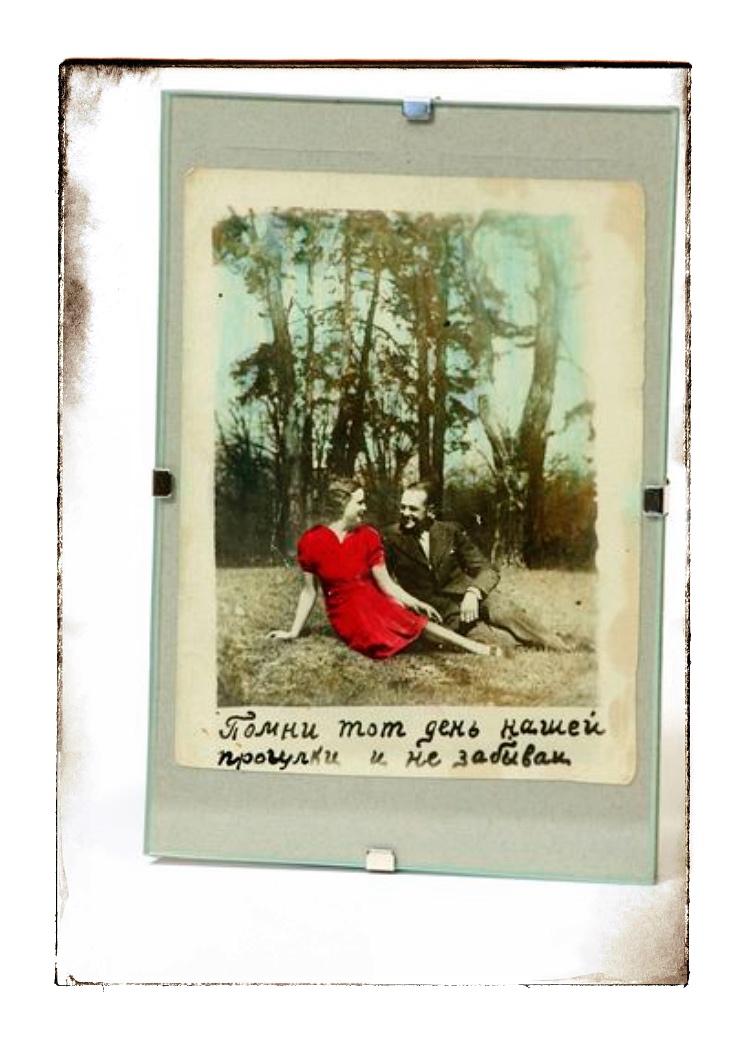 Помни тот день нашей
прогулки и не забывай